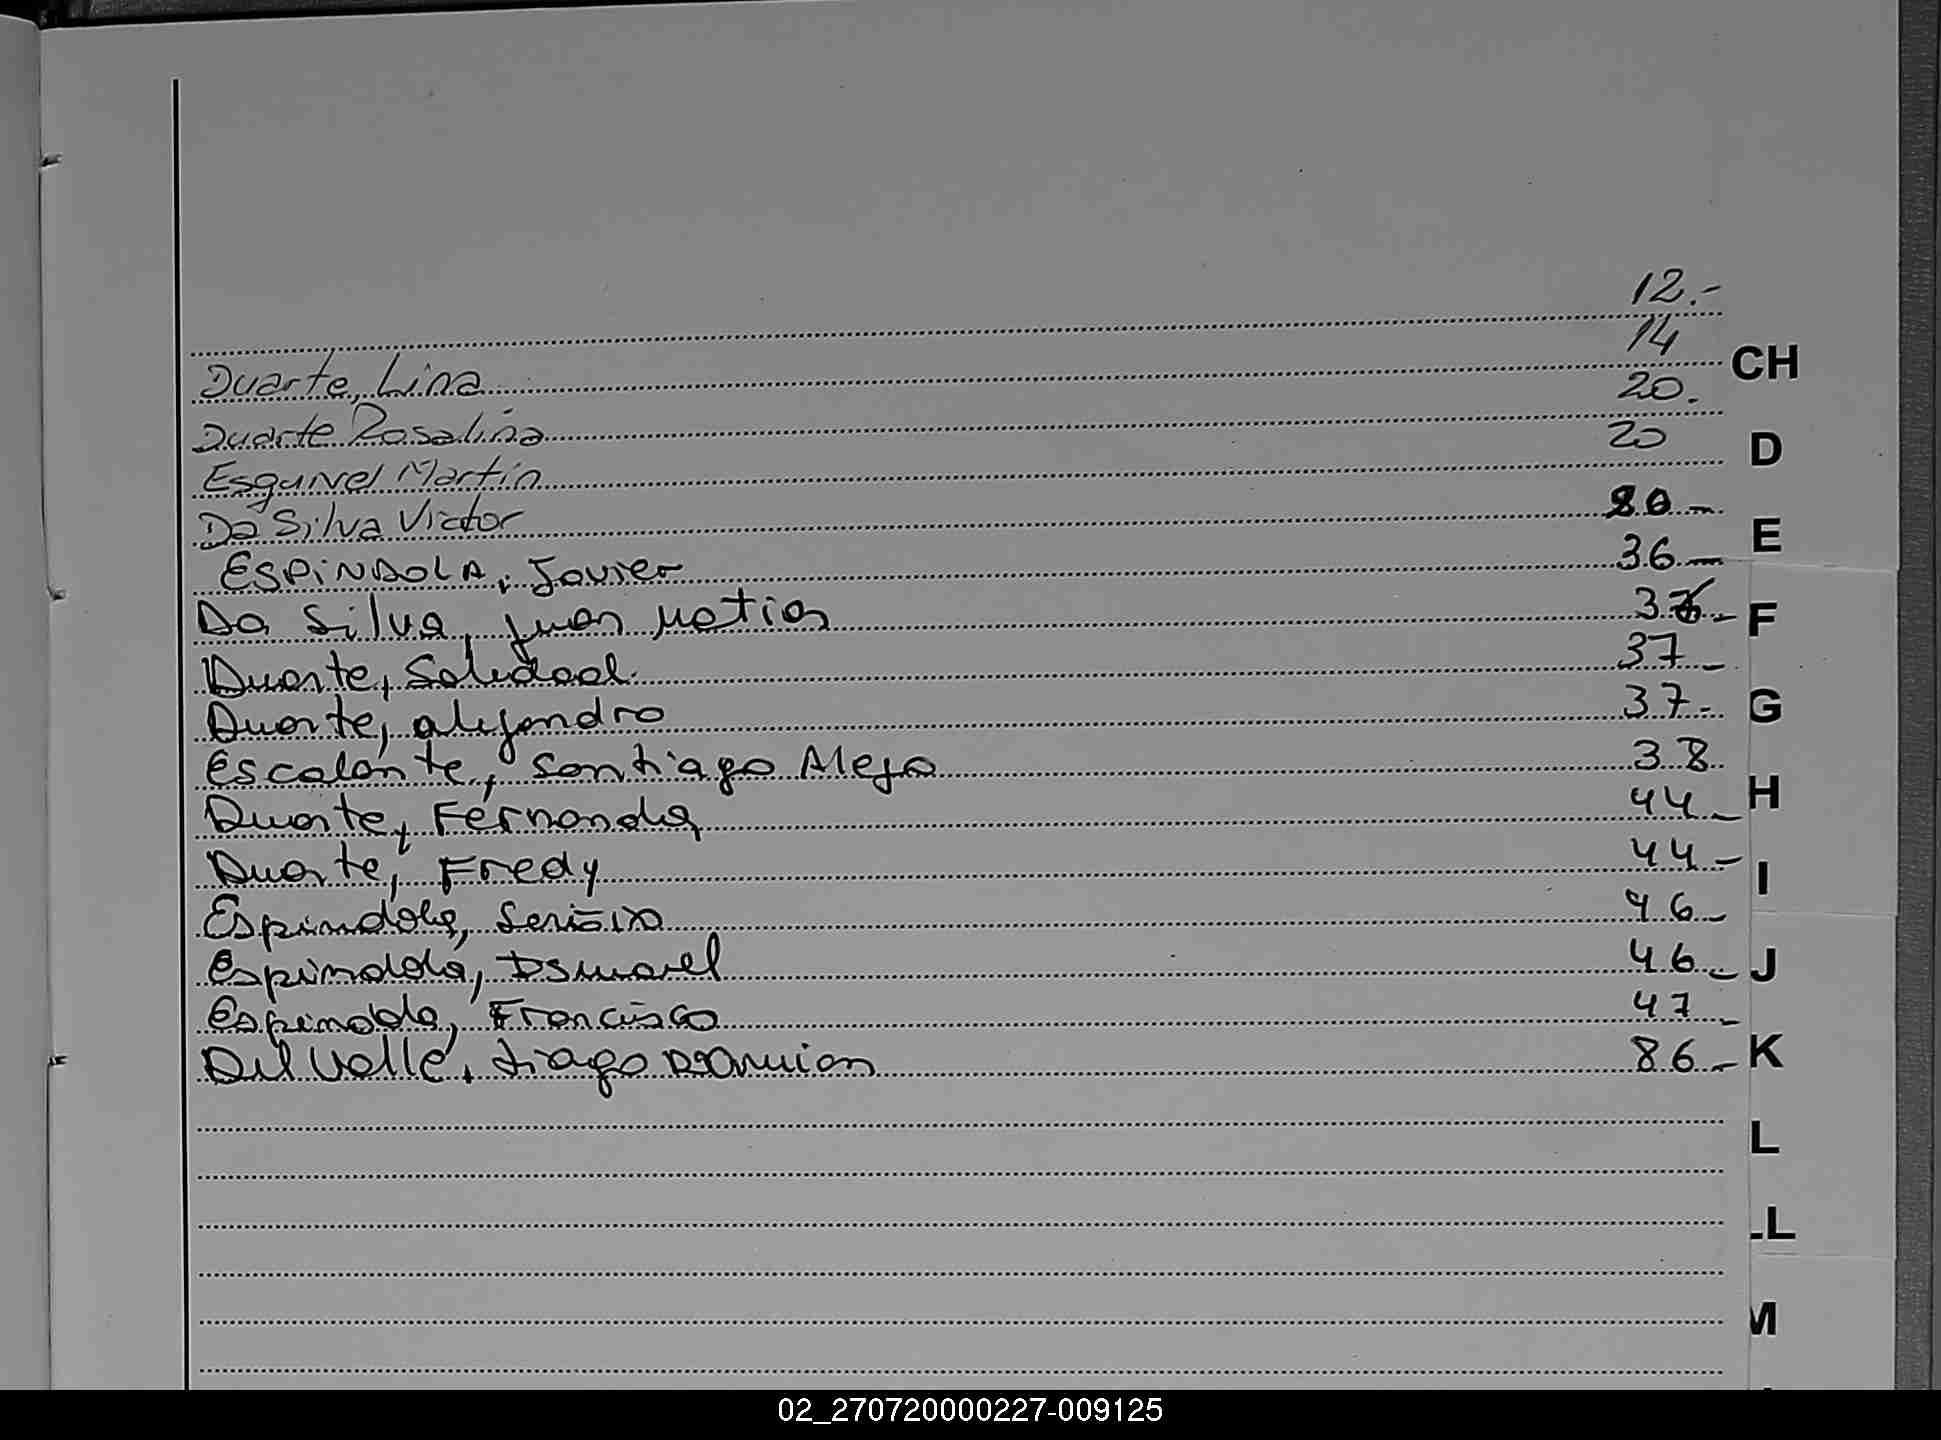 12.-
Duarte, Lina 14
Duarte Rosalina 20.
Esquivel Martin 20
Da Silva Victor -
ESPINDOLA, Javier 36 -
Da Silva, Juan Matias 36 -
Duarte, Soledad. 37 -
Duarte, alejandro 37 -
Escalante, Santiago Alejo 38
Duarte, Fernanda 44 -
Duarte, Fredy 44 -
Espindola, 46 -
Espindola, Ismael 46 -
Espindola, Francisco 47 -
Del Valle, tiago Damian 86 -
CH
D
E
F
G
H
I
J
K
L
LL
M
02_270720000227-009125